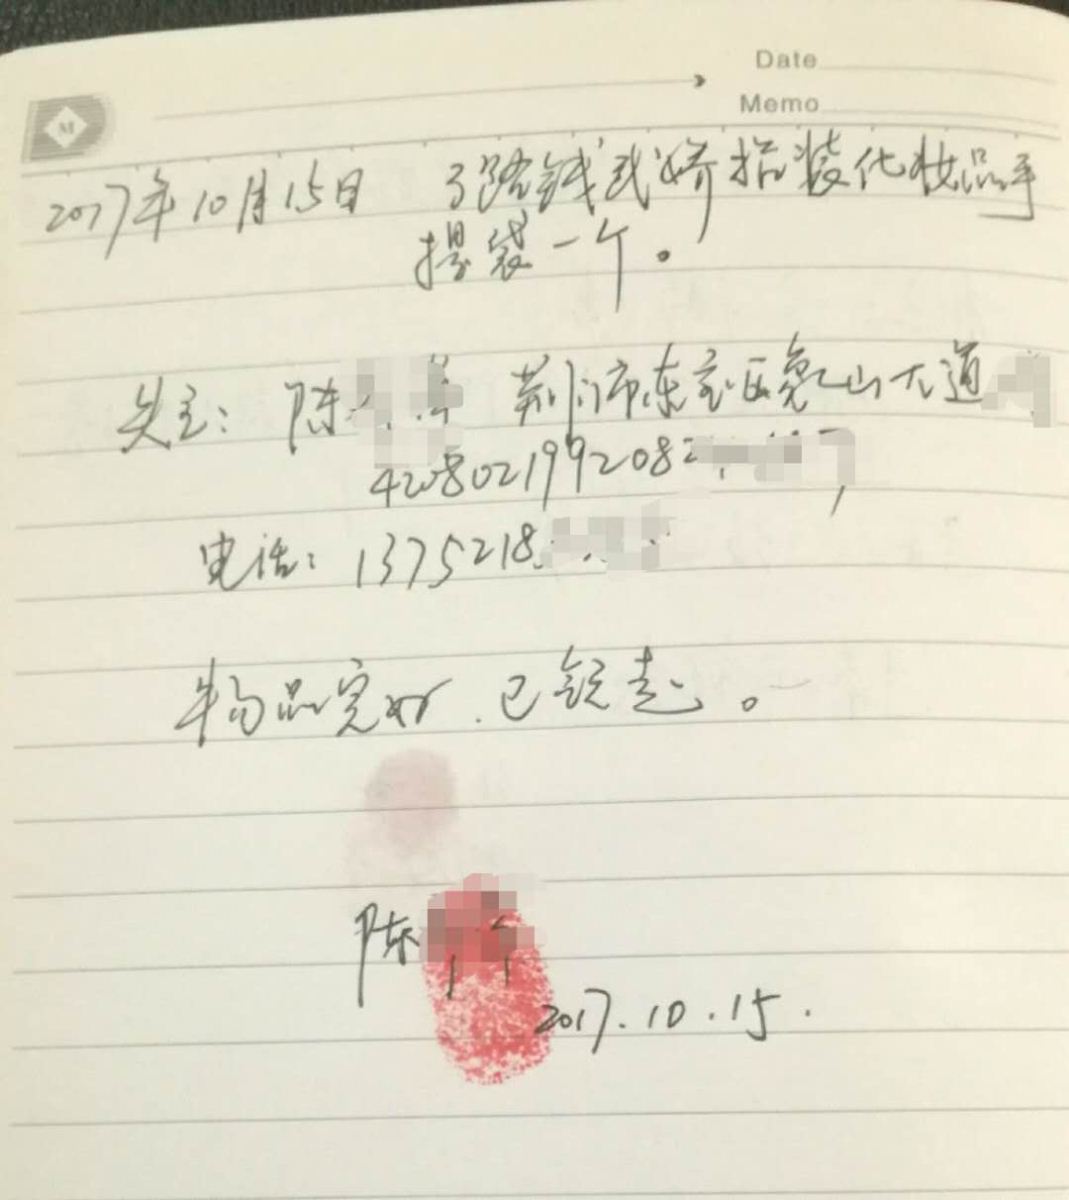 Date
Memo
M
2017年10月15日 3路钱武娇拾装化妆品手
提袋一个。
失主：陈 荆门市东宝区象山大道
4208021992082
电话：1375218
物品完好.已领走。
陈
2017.10.15.